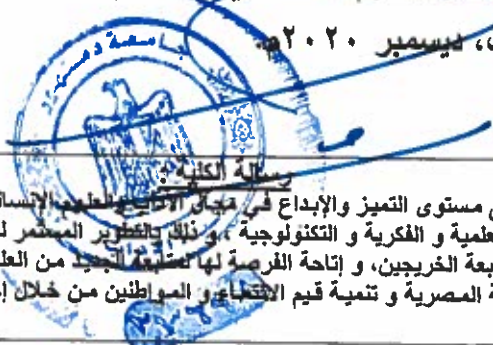 ، ديسمبر ٢٠٢٠م
جامعة دمنهور
رسالة الكلية :
مستوى التميز والإبداع في مجال الآداب والعلوم الإنسانية
علمية و الفكرية و التكنولوجية ، و ذلك بالتطوير المستمر
بعة الخريجين، و إتاحة الفرصة لها لمتابعة الجديد من
ة المصرية و تنمية قيم الانتماء و المواطنين من خلال